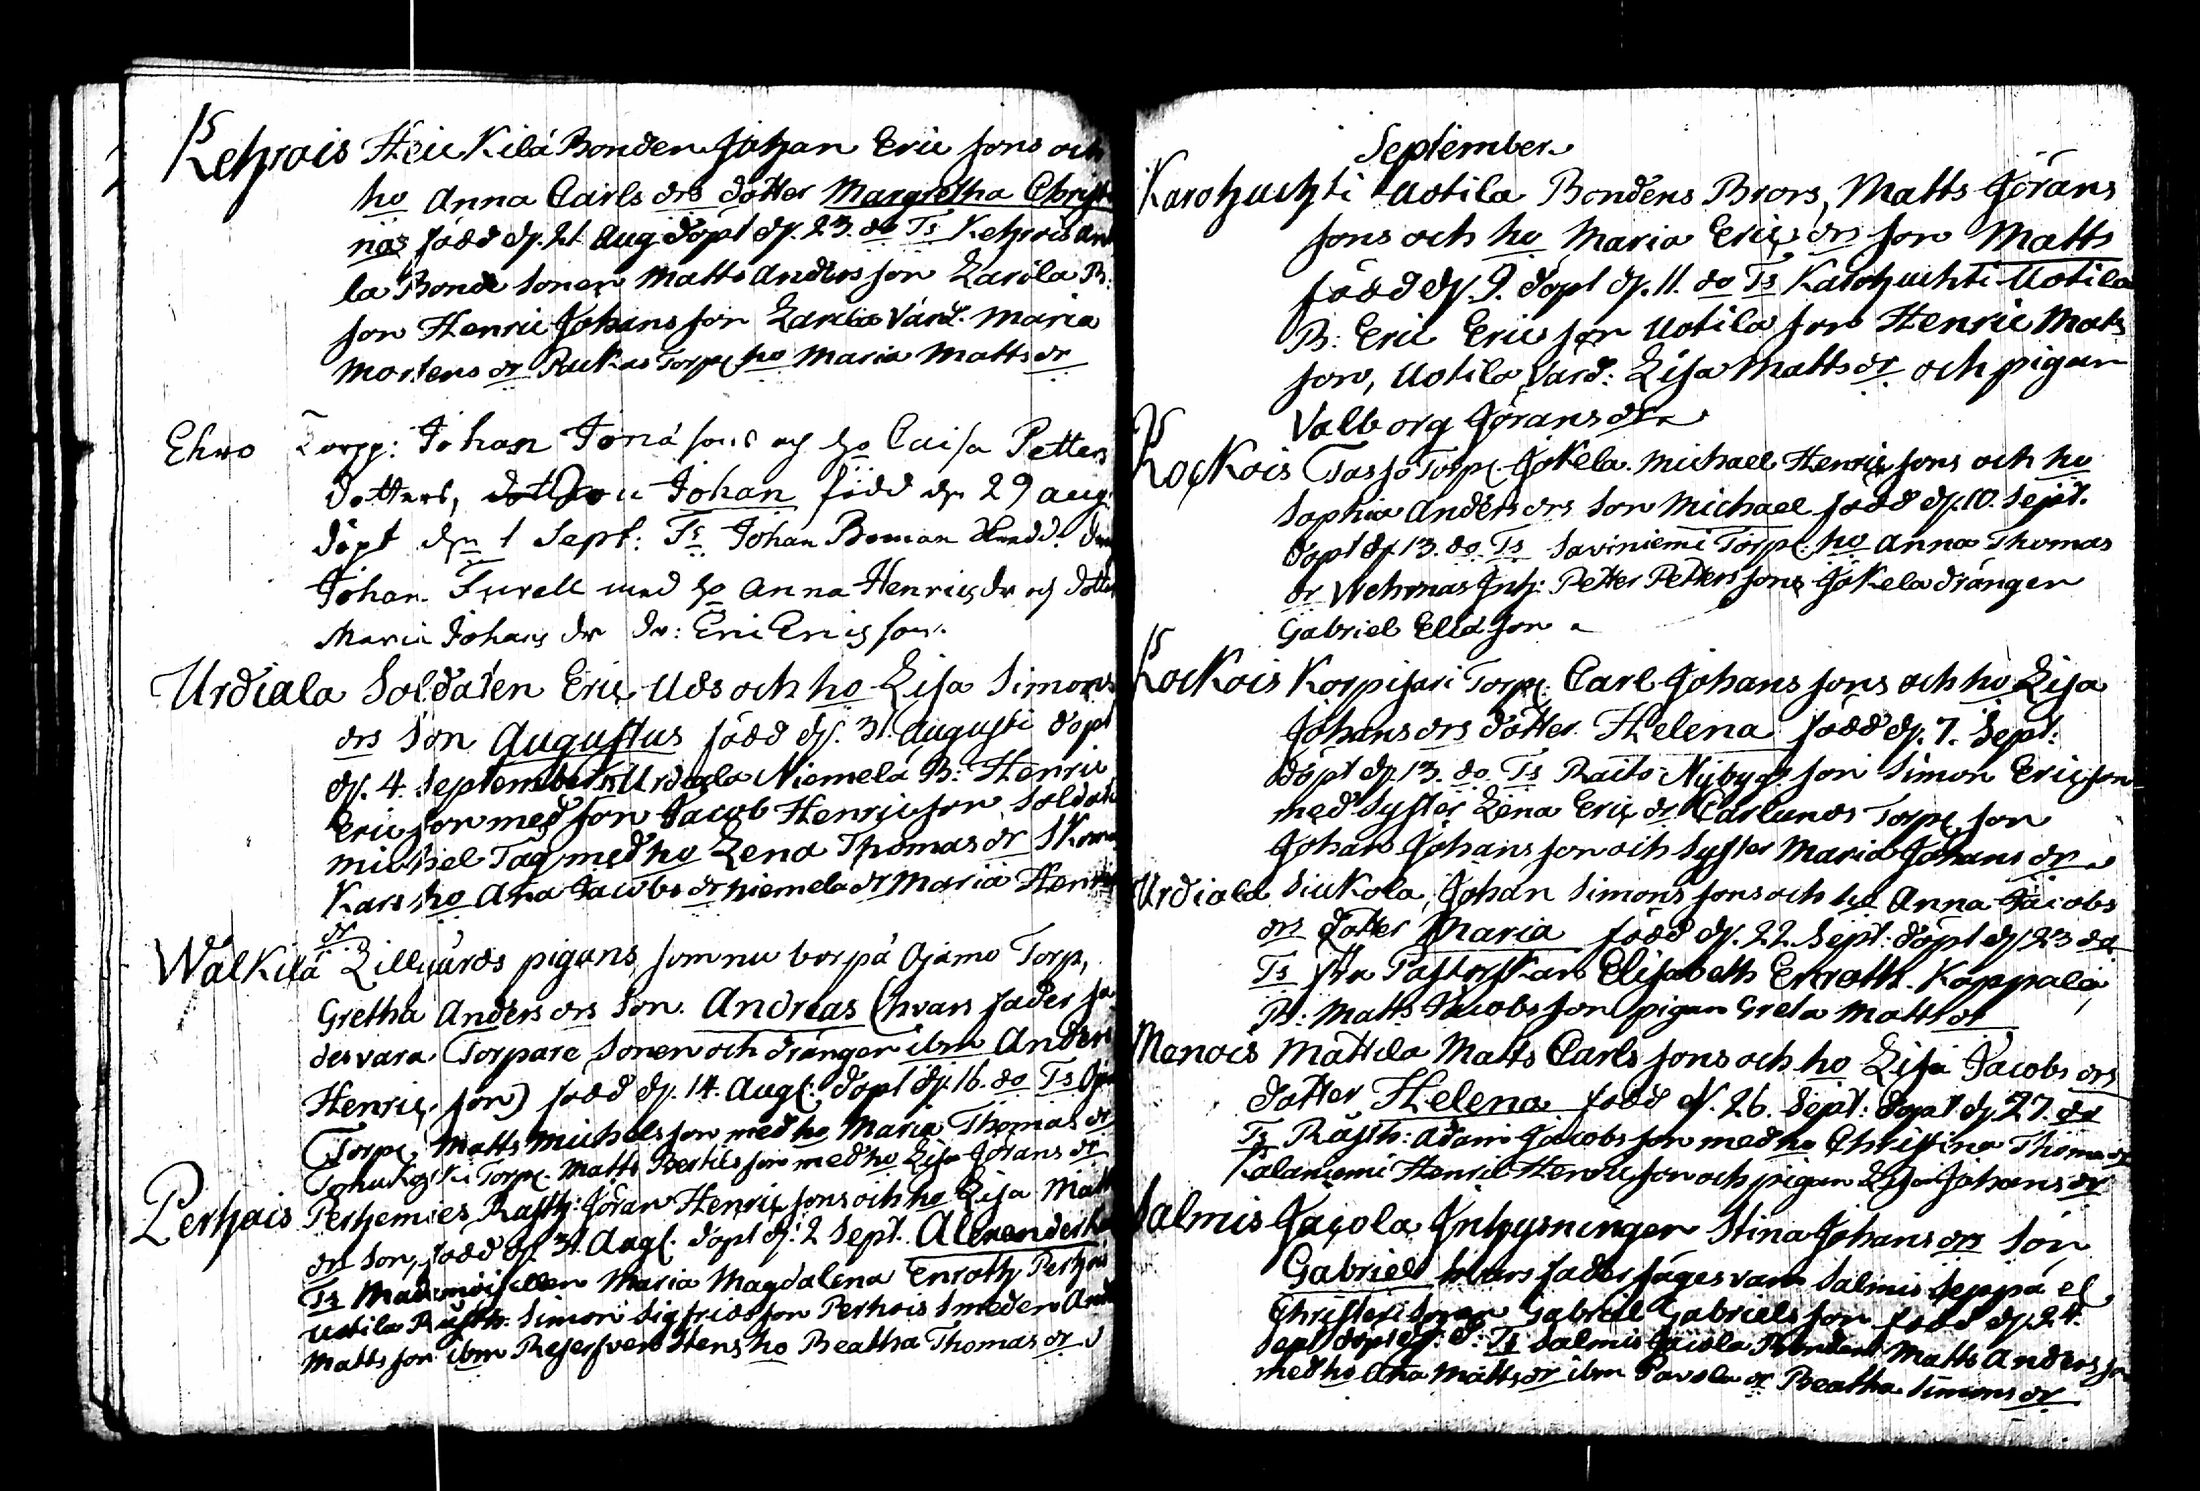 Kehrois Heickilä Bonden Johan Ericsons och
ho Anna Carls drs dotter Margretha Christi
nas född d. 21 Aug döpt d. 23. do Ts Kehrois
la Bonde sonen Matts Andersson Laxila B:
son Henric Johansson Laxila Värd. Maria
Mortens dr Ruckas Torp. ho Maria Matts dr
Ehro Torpp: Johan Jona sons och ho Caisa Petters
dotters, Son Johan född den 29 aug.
döpt den 1 Sept: Ts Johan Boman
Johan Furell med ho Anna Henrics dr och dotter
Maria Johans dr dr: Eric Ericsson.
Urdiala Soldaten Eric Uds och ho Lisa Simons
drs Son Augustus född d. 31 Augusti döpt
d. 4. September Ts Urdiala Niemelä B: Henric
Ericsson med son Jacob Henricson Soldat
Michel Tag med ho Lena Thomas dr
Kars ho Ana Jacobs dr Niemelä dr Maria Henrics
dr
Walkila Lillgårds pigans som nu bor på Ojamo Torp,
Gretha Anders drs Son. Andreas (hvars fader sä
des vara Torpare Sonen och drängen ibm Anders
Henricson) född d. 14. Aug. döpt d. 16. do Ts
Torp. Matts Michelsson med ho Maria Thomas dr
Torp. Matts Bertilsson med ho Lisa Jörans dr
Perhois Perhemies Rusth: Jöran Henrics sons och ho Lisa Matts
drs Son, född d. 31. Aug. döpt d. 2 Sept. Alexander
Ts Mademoisellen Maria Magdalena Enroth Perhois
Uotila Rusth: Simon Sigfridsson Perhois Smeden
Mattsson ibm Reserven Stens ho Beatha Thomas dr
September.
Karohuchti Uotila Bondens Brors, Matts Jörans
sons och ho Maria Erics drs son Matts
född d. 9. döpt d. 11. do Ts Karohuchti Uotila
B: Eric Ericsson Uotila son Henric Mats
son, Uotila Värd: Lisa Matts dr och pigan
Valborg Jörans dr
Kockois Torp. Jokela. Michael Henrics sons och ho
Sophia Anders drs Son Michael född d. 10. Sept.
döpt d. 13. do Ts Saviniemi Torp: ho Anna Thomas
dr Wehmas Inh: Petter Pettersson Jokela drängen
Gabriel Eliasson
Kockois Korpisari Torp. Carl Johans sons och ho Lisa
Johans drs dotter Helena född d. 7. Sept:
döpt d. 13. do Ts Raito Nybygg. son Simon Ericsson
med Syster Lena Erics dr Carlunds Torp. son
Johan Johansson och Syster Maria Johans dr
Urdiala Siukola, Johan Simons sons och ho Anna Jacobs
drs dotter Maria född d. 22. Sept: döpt d. 23 do
Ts Fru Pastorskan Elisabeth Enroth. Kappala
B: Matts Jacobsson pigan Greta Matts dr
Menois Mattila Matts Carls sons och ho Lisa Jacobs drs
dotter Helena född d. 26. Sept: döpt d. 27. do
Ts Rusth: Adam Jacobsson med ho Christina Thomas dr
Kalaniemi Henric Henricson och pigan Lisa Johans dr
Salmis Jacola Inhysningen Stina Johans drs Son
Gabriel hvars fader säges vara Salmis Seppä el.
Gabriel Gabrielsson född d. 24.
Sept döpt d. Ts Salmis Jacola Bonden Matts Andersson
med ho Ana Matts dr ibm Pavola dr Beatha Simons dr